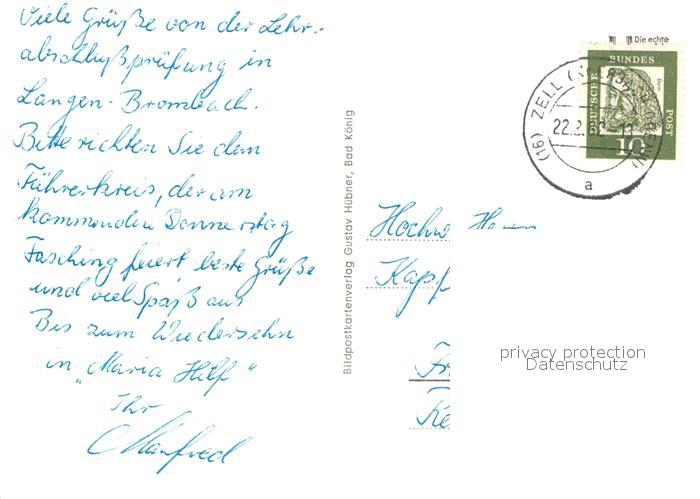 Viele Grüße von der Lehr-
abschlußprüfung in
Langen-Brombach.
Bitte richten Sie dem
Führerkreis, der am
kommenden Donnerstag
Fasching feiert beste Grüße
und viel Spaß aus
Bis zum Wiedersehn
in "Maria Hilf"
Ihr
Manfred
Bildpostkartenverlag Gustav Hübner, Bad König
Die echte
DEUTSCHE BUNDESPOST
10
(16) ZELL
22.2.
a
Hochw Herrn
Kapf
Fr
Re
privacy protection
Datenschutz